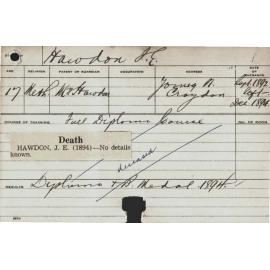 Hawdon J.E.
AGE RELIGION PARENT OR GUARDIAN OCCUPATION ADDRESS DATE OF ENTRANCE
17 Meth. Mr Hawdon Croydon Sept. 1892
Dec 1894
COURSE OF TRAINING Full Diploma Course
Death
HAWDON, J. E. (1894)—No details
known.
deceased
RESULTS Diploma & B. Medal 1894.